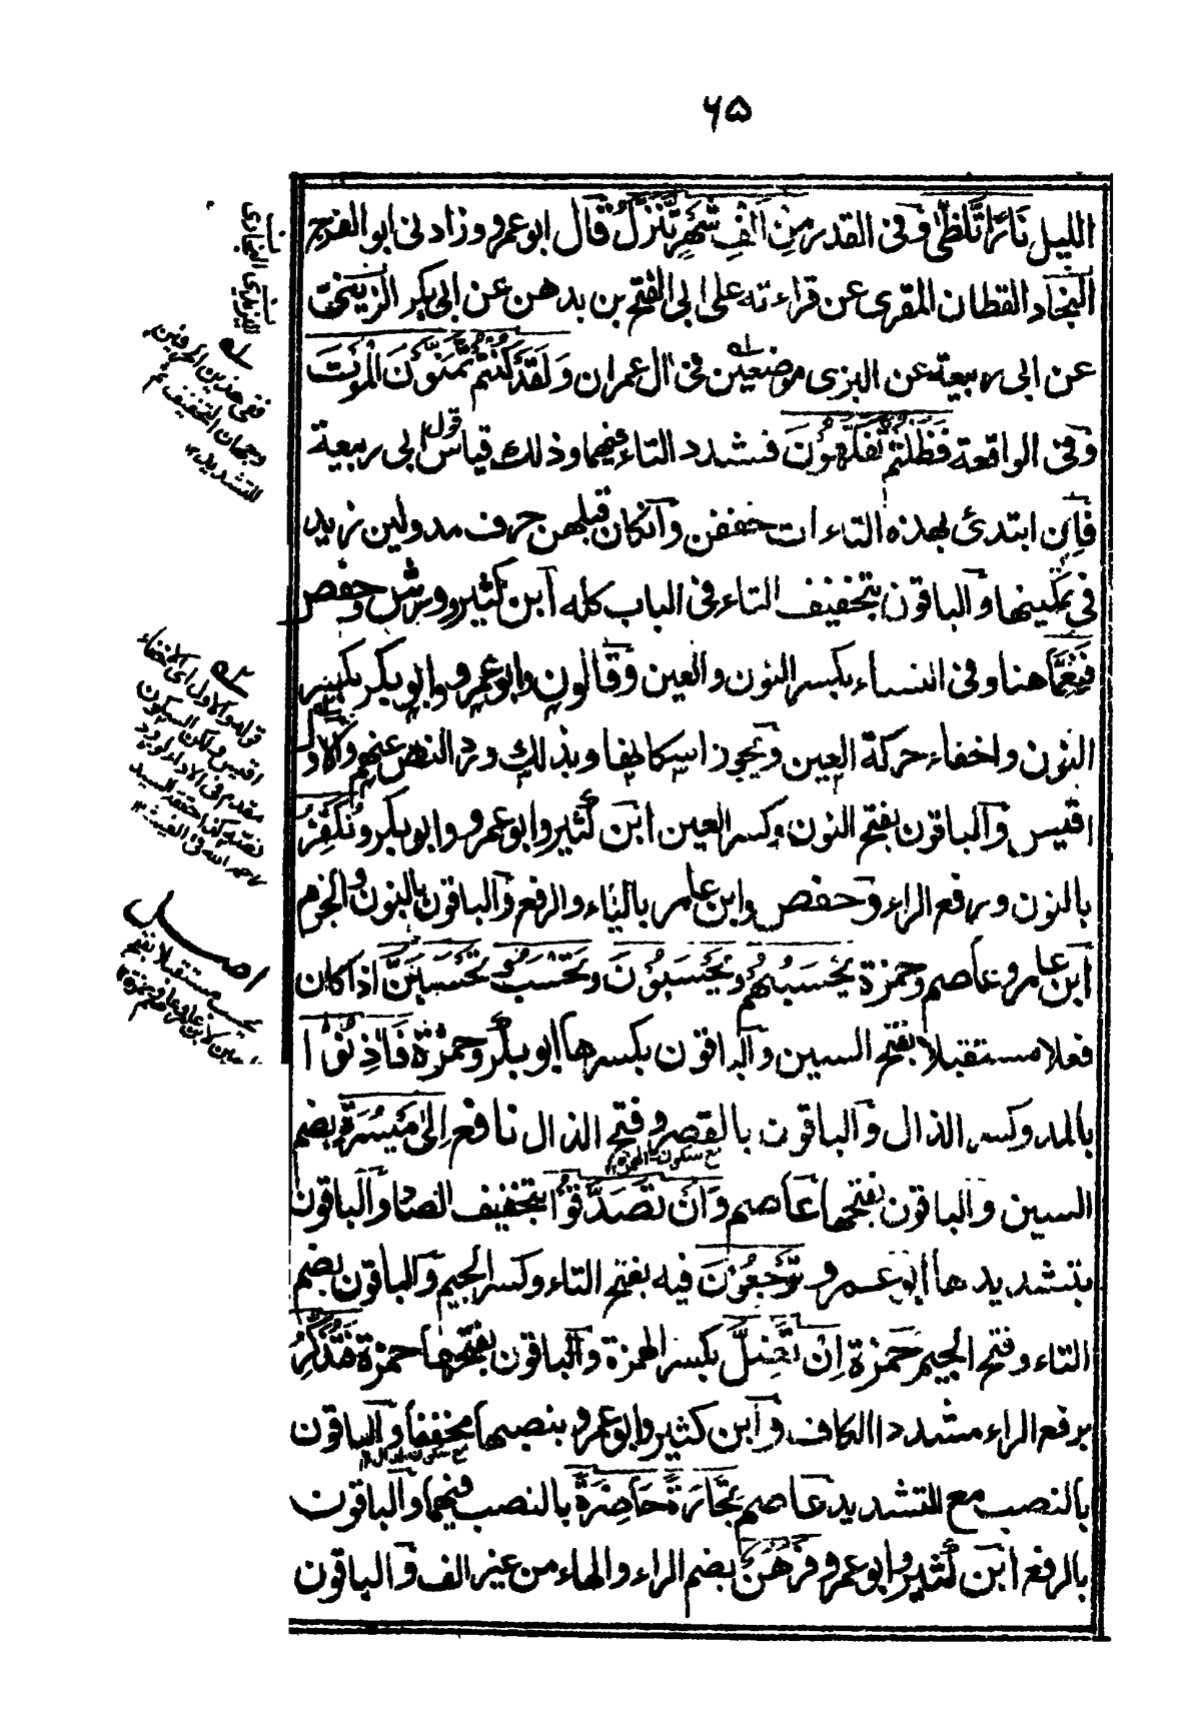 ٦٥
الليل نَارًا تَّلَظّٰى وفى القدر مِنْ اَلْفِ شَهْرٍ تَّنَزَّلُ قال ابو عمرو وزادنى ابو الفرج
النجاد القطان المقرى عن قراءته على ابى الفتح بن بدهن عن ابى بكر الزينبى
عن ابى ربيعة عن البزى موضعين فى ال عمران وَلَقَدْ كُنْتُمْ تَّمَنَّوْنَ الْمَوْتَ
وفى الواقعة فَظَلْتُمْ تَّفَكَّهُوْنَ فشدد التاء فيهما وذلك قياس قول ابى ربيعة
فاِن ابتدئ بهذه التاءات خففن وان كان قبلهن حرف مد ولين زيد
فى تمكينها والباقون بتخفيف التاء فى الباب كله ابن كثير وورش وحفص
فَنِعِمَّا هنا وفى النساء بكسر النون والعين وقالون وابو عمرو وابو بكر بكسر
النون واخفاء حركة العين ويجوز اسكانها وبذلك ورد النص عنهم والاول
اقيس والباقون بفتح النون وكسر العين ابن كثير وابو عمرو وابو بكر وَنُكَفِّرُ
بالنون ورفع الراء وحفص وابن عامر بالياء والرفع والباقون بالنون والجزم
ابن عامر وعاصم وحمزة يَحْسَبُهُمْ وَيَحْسَبُوْنَ وَتَحْسَبُ تَحْسَبَنَّ اذا كان
فعلا مستقبلا بفتح السين والباقون بكسرها ابو بكر وحمزة فَاٰذِنُوْا
بالمد وكسر الذال والباقون بالقصر وفتح الذال نافع اِلٰى مَيْسُرَةٍ بضم
مع سكون الهمزة
السين والباقون بفتحها عاصم وَاَنْ تَصَدَّقُوْا بتخفيف الصاد والباقون
بتشديدها ابو عمرو تَرْجِعُوْنَ فيه بفتح التاء وكسر الجيم والباقون بضم
التاء وفتح الجيم حمزة اِنْ تَضِلَّ بكسر الهمزة والباقون بفتحها حمزة فَتُذَكِّرُ
برفع الراء مشددا الكاف وابن كثير وابو عمرو بنصبها مخففا والباقون
مع سكون الذال
بالنصب مع التشديد عاصم تِجَارَةً حَاضِرَةً بالنصب فيهما والباقون
بالرفع ابن كثير وابو عمرو فَرُهُنٌ بضم الراء والهاء من غير الف والباقون
ففى هذين الحرفين
وجهان التخفيف ثم
التشديد
قوله والاول اى الاخفاء
اقيس ولكن السكون
اصل